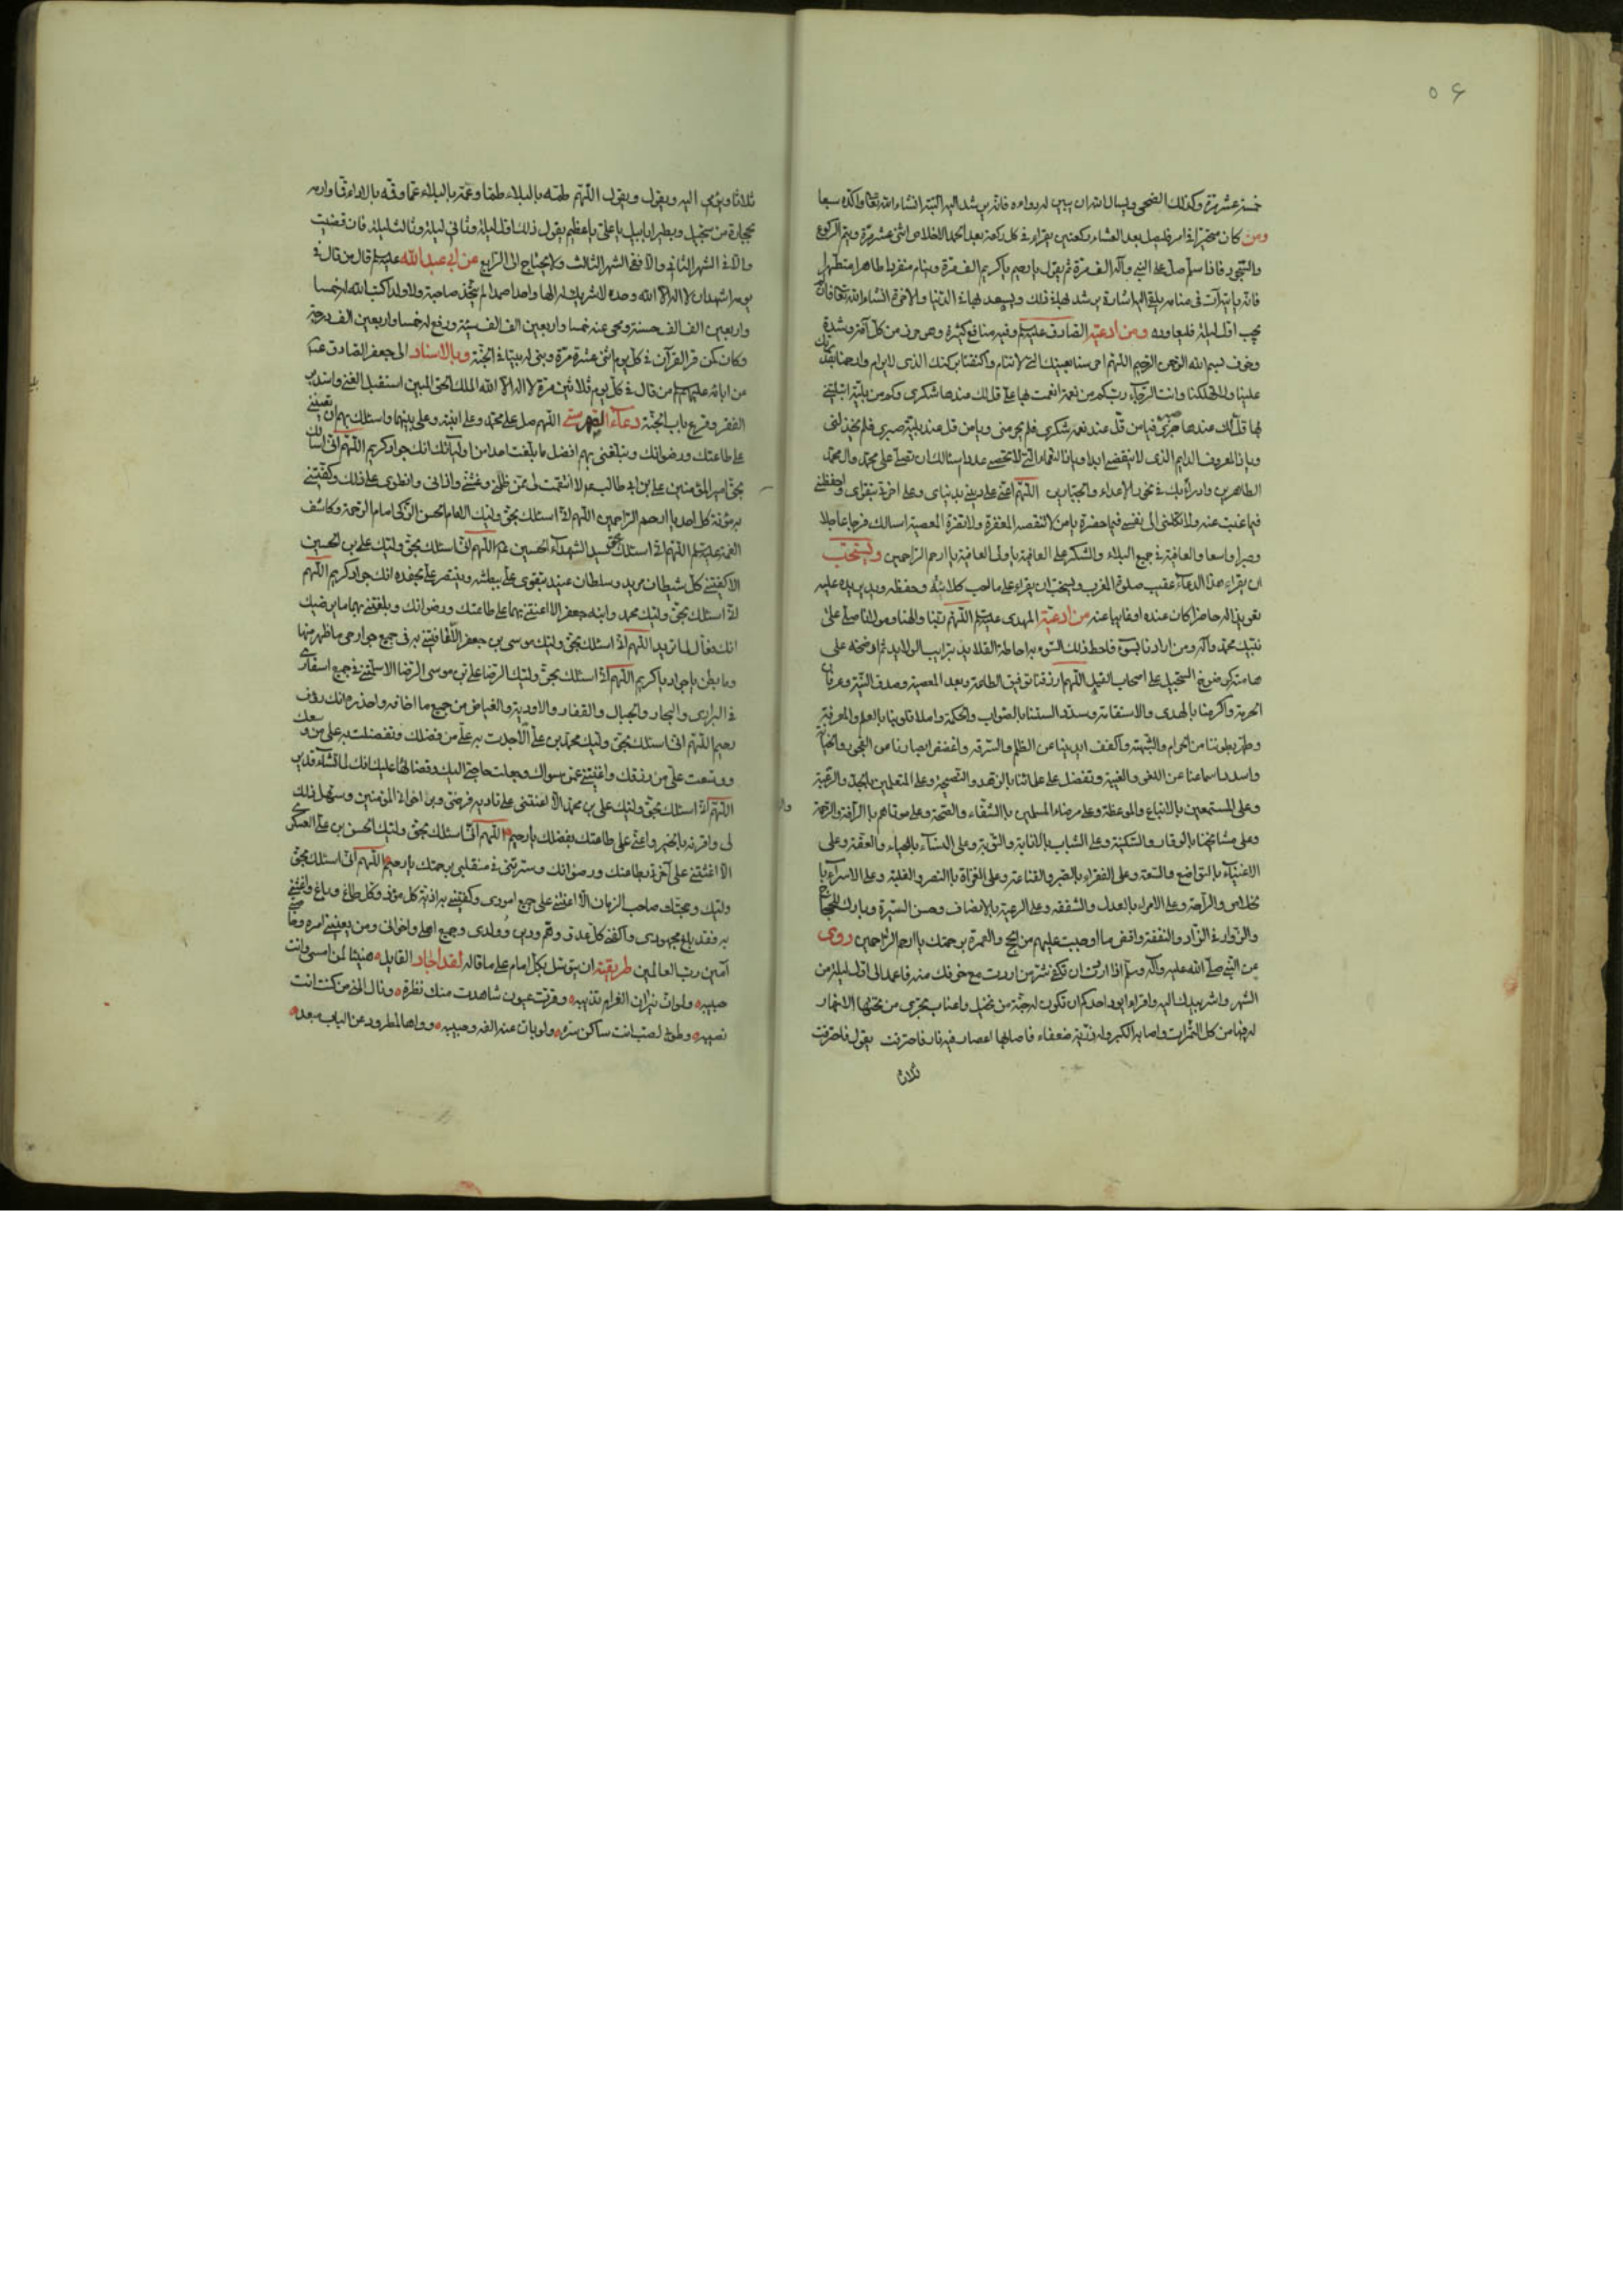 ٥٦
خمسة عشر مرة وكذلك الضحى ويسال الله ان يبين له دواءه فانه يرشد اليه البتة انشاء الله تعالى واكده سبعا
ومن كان متحيرا في امر فليصل بعد العشاء ركعتين يقراء في كل ركعة بعد الحمد الاخلاص اثنى عشر مرة ويتم الركوع
والسجود فاذا سلم صل على النبي وآله الف مرة ثم يقول يا رحيم يا كريم الف مرة وينام منفردا طاهرا متطهرا
فانه ياتيه آت في منامه يلقى اليه اشارة يرشد بها في ذلك ويسعد بها في الدنيا والاخرة انشاء الله تعالى فان لم
يجب اول ليلة فليعاوده ومن ادعية الصادق عليه السلم وفيه منافع كثيرة وهى حرز من كل آفة وشدة
وخوف بسم الله الرحمن الرحيم اللهم احرسنا بعينك التي لا تنام واكنفنا بركنك الذى لا يرام وارحمنا بقدرتك
علينا ولا تهلكنا وانت الرجاء رب كم من نعمة انعمت بها على قل لك عندها شكرى وكم من بلية ابتليتني
بها قل لك عندها صبرى فيا من قل عند نعمه شكرى فلم يحرمنى ويا من قل عند بليته صبرى فلم يخذلنى
ويا ذا المعروف الدايم الذى لا ينقضى ابدا ويا ذا النعماء التي لا تحصى عددا اسئلك ان تصلى على محمد وال محمد
الطاهرين وادرأ بك في نحور الاعداء والجبارين اللهم اعنى على دينى بدنياى وعلى اخرتى بتقواى واحفظنى
فيما غبت عنه ولا تكلنى الى نفسى فيما حضرته يا من لا تنقصه المغفرة ولا تضره المعصية اسالك فرجا عاجلا
وصبرا واسعا والعافية في جميع البلاء والشكر على العافية يا ولى العافية يا ارحم الراحمين ويستحب
ان يقراء هذا الدعاء عقيب صلوة المغرب ويستحب ان يقراء على ما احب كلائته وحفظه ويدير يده عليه
تعويذا له حاضرا كان عنده او غايبا عنه من ادعية المهدى عليه السلم اللهم ربنا والهنا ومولانا صل على
نبيك محمد وآله ومن ارادنا بسوء فاحط ذلك السوء به احاطة القلايد بترايب الولايد ثم ارضخه على
هامته كرضوخ السجيل على اصحاب الفيل اللهم ارزقنا توفيق الطاعة وبعد المعصية وصدق النية وعرفان
الحرمة واكرمنا بالهدى والاستقامة وسدد السنتنا بالصواب والحكمة واملا قلوبنا بالعلم والمعرفة
وطهر بطوننا من الحرام والشبهة واكفف ايدينا عن الظلم والسرقه واغضض ابصارنا عن الفجور والخيانة
واسدد اسماعنا عن اللغو والغيبة وتفضل على علمائنا بالزهد والنصيحة وعلى المتعلمين بالجهد والرغبة
وعلى المستمعين بالاتباع والموعظة وعلى مرضاء المسلمين بالشفاء والصحة وعلى موتاهم بالرأفة والرحمة
وعلى مشايخنا بالوقار والسكينة وعلى الشباب بالانابة والتوبة وعلى النساء بالحياء والعفة وعلى
الاغنياء بالتواضع والسعة وعلى الفقراء بالصبر والقناعة وعلى الغزاة بالنصر والغلبة وعلى الاسراء با
لخلاص والراحة وعلى الامراء بالعدل والشفقه وعلى الرعية بالانصاف وحسن السيرة وبارك للحجاج
والزوار في الزاد والنفقة واقض ما اوجبت عليهم من الحج والعمرة برحمتك يا ارحم الراحمين روى
عن النبي صلى الله عليه وآله وسلم اذا اردت ان تكفى شر من اردت مع خوفك منه فاعمد الى اول ليلة من
الشهر واشر بيدك اليه واقراء ايود احدكم ان تكون له جنة من نخيل واعناب تجرى من تحتها الانهار
له فيها من كل الثمرات واصابه الكبر وله ذرية ضعفاء فاصابها اعصار فيه نار فاحترقت يقول فاحترقت
ثلاثا
ثلاثا ويومى اليه ويقول ويقول اللهم طمه بالبلاء طما وعمه بالبلاء عما وقه بالاداء قا وارمه
بحجارة من سجيل وبطير ابابيل يا على يا عظيم يقول ذلك اول ليلة وثانى ليلة وثالث ليلة فان قضيت
والا في الشهر الثاني والا ففي الشهر الثالث ولا يحتاج الى الرابع عن ابى عبد الله عليه السلم قال من قال في
يومه اشهد ان لا اله الا الله وحده لا شريك له الها واحدا صمدا لم يتخذ صاحبة ولا ولدا كتب الله له خمسا
واربعين الف الف حسنة ومحى عنه خمسا واربعين الف الف سيئة ورفع له خمسا واربعين الف درجة
وكان كمن قرا القرآن في كل يوم اثنى عشرة مرة وبنى له بيتا في الجنة وبالاسناد الى جعفر الصادق عليه
من ابائه عليهم السلم من قال في كل يوم ثلاثين مرة لا اله الا الله الملك الحق المبين استقبل الغنى واستدبر
الفقر وقرع باب الجنة دعاء اللهم صل على محمد وعلى ابنته وعلى ابنيها واسئلك بهم ان تعيننى
على طاعتك ورضوانك وتبلغنى بهم افضل ما بلغت احدا من اوليائك انك جواد كريم اللهم انى اسالك
بحق امير المؤمنين على بن ابى طالب الا انتقمت لى ممن ظلمنى وغشنى واذانى وانطوى على ذلك وكفيتنى
به مؤنة كل احد يا ارحم الراحمين اللهم انى اسئلك بحق وليك الامام الحسن الزكى امام الرحمة وكاشف
الغمة عليه السلم اللهم انى اسئلك بحق سيد الشهداء الحسين اللهم انى اسئلك بحق وليك على بن الحسين
الا كفيتنى كل شيطان مريد وسلطان عنيد يتقوى على ببطشه وينتصر على بجنده انك جواد كريم اللهم
انى اسئلك بحق وليك محمد وابنه جعفر الا اعنتنى بهما على طاعتك ورضوانك وبلغتنى بهما ما يرضيك
انك فعال لما تريد اللهم انى اسئلك بحق وليك موسى بن جعفر الا عافيتنى به في جميع جوارحى ما ظهر منها
وما بطن يا جواد يا كريم اللهم انى اسئلك بحق وليك الرضا على بن موسى الرضا الا سلمتنى في جميع اسفارى
في البرارى والبحار والجبال والقفار والاودية والغياض من جميع ما اخافه واحذره انك رؤف
رحيم اللهم انى اسئلك بحق وليك محمد بن على الا جدت به على من فضلك وتفضلت به على من وسعك
ووسعت على من رزقك واغنيتنى عمن سواك وجعلت حاجتى اليك وقضائها عليك انك لما تشاء قدير
اللهم انى اسئلك بحق وليك على بن محمد الا اعنتنى على تادية فرضى وبر اخوانى المؤمنين وسهل ذلك
لى واقرنه بالخير واعنى على طاعتك بفضلك يا رحيم اللهم انى اسئلك بحق وليك الحسن بن على العسكرى
الا اعنتنى على آخرتى بطاعتك ورضوانك وسررتنى في منقلبى برحمتك يا ارحم اللهم انى اسئلك بحق
وليك وحجتك صاحب الزمان الا اعنتنى على جميع امورى وكفيتنى به اذية كل مؤذ وكل طاغ وباغ واعنتنى
به فقد بلغ مجهودى واكفنى كل عدو وهم ودين وولدى وجميع اهلى واخوانى ومن يعنينى امره وخاصتى
آمين رب العالمين طريقة ان يتوسل بكل امام على ما قاله لقد اجاد القايل هنيئا لمن امسى وانت
حبيبه ولو ان نيران الغرام تذيبه وقرت عيون شاهدت منك نظرة ونال المنى من كنت انت
نصيبه وطوبى لصب انت ساكن سره ولو بان عنه الفه وحبيبه وواها لمطرود عن الباب مبعد